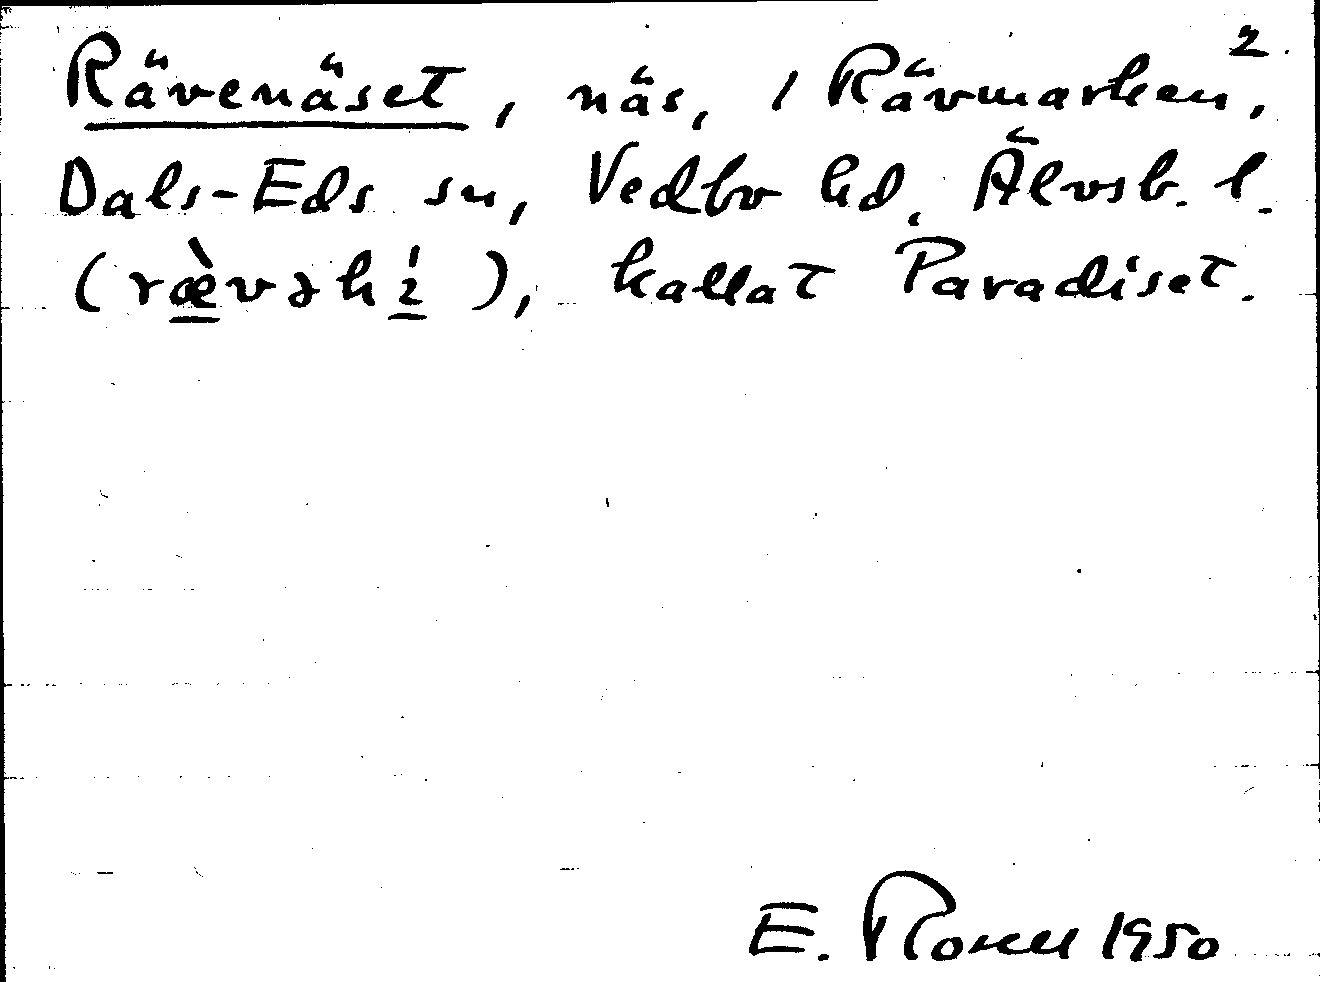 Rävenäset, näs, / Rävmarken²,
Dals-Eds sn, Vedbo hd, Älvsb. l.
kallat Paradiset.
E. Rosell 1950